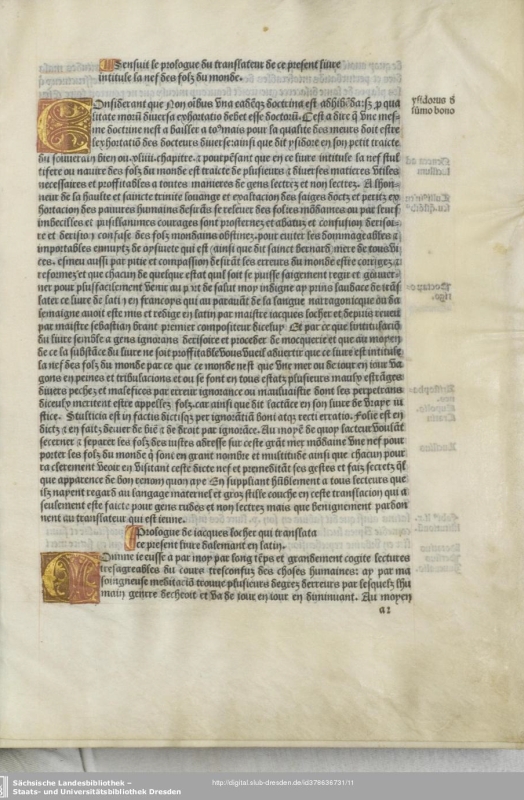 Sensuit le prologue du translateur de ce present livre
intitule la nef des folz du monde.
ysidorus d
sumo bono
Considerant que Non oibus vna eademq̃ doctrina est adhibẽda: sz p qua
litate moru͂ diuersa exhortatio debet esse doctoru͂. Cest a dire q̃ vne mes
me doctrine nest a bailler a to9 mais pour la qualite des meurs doit estre
lexhortaciõ des docteurs diuerse: ainsi que dit ysidore en son petit traicte
du souuerain bien ou .xliiii. chapitre. z pourpẽsant que en ce liure intitule la nef stul
tifere ou nauire des folz du monde est traicte de plusieurs z diuerses matieres vtiles
necessaires et proffitables a toutes manieres de gens lectrez et non lectrez. A lhon
neur de la haulte et saincte trinite louange et exaltacion des saiges doctz et petitz ex
hortacion des pauures humains desirãs se releuer des folies mõdaines ou par leurs
imbecilles et pusillanimes courages sont prosternez et abatuz et confusion derisoi
re et derision confuse des folz mondains obstinez. pour euiter les dommageables z
importables ennuytz de oysiuete qui est (ainsi que dit sainct bernard) mere de tous vi
ces. esmeu aussi par pitie et compassion desirãt les erreurs du monde estre corrigez z
reformez et que chacun de quelque estat quil soit se puisse saigement regir et gouuer
ner pour plus facilement venir au port de salut moy indigne ay prins laudace de trãs
later ce liure de latin en francoys qui au parauãt de sa langue narragonicque ou da
lemaigne auoit este mis et redige en latin par maistre iacques locher et depuis reueu
par maistre sebastian brant premier compositeur dicelluy. Et par ce que lintitulaciõ
du liure semble a gens ignorans derisoire et proceder de mocquerie et que au moyen
de ce la substãce du liure ne soit proffitable vous vueil aduertir que ce liure est intitule
la nef des folz du monde par ce que ce monde nest que vne mer ou de iour en iour va
gons en peines et tribulacions et ou se font en tous estatz plusieurs maulx estrãges
diuers pechez et malefices par erreur ignorance ou mauluaistie dont les perpetrans
diceulx meritent estre appellez folz. car ainsi que dit lactãce en son liure de vraye iu
stice. Stulticia est in factis dictisq̃ per ignorãtiã boni atq̃ recti erratio. Folie est en
dictz z en faitz deuier de bie͂ z de droit par ignorãce. Au moye͂ de quoy lacteur voulãt
secerner z separer les folz des iustes adresse sur ceste grãt mer mõdaine vne nef pour
porter les folz du monde q̃ sont en grant nombre et multitude ainsi que chacun pour
ra clerement veoir en visitant ceste dicte nef et premeditãt ses gestes et faiz secretz ql
que apparence de bon renom quon aye En suppliant hu͂blement a tous lecteurs que
ilz nayent regard au langage maternel et gros stille couche en ceste translacion qui a
seulement este faicte pour gens rudes et non lectrez mais que benignement pardon
nent au translateur qui est ieune.
Prologue de iacques locher qui translata
ce present liure dalemant en latin.
Comme ie eusse a par moy par long te͂ps et grandement cogite lectures
tresagreables du cours tresconfuz des choses humaines: ay par ma
songneuse meditaciõ trouue plusieurs degrez derreurs par lesquelz lhu
main genre dechroit et va de iour en iour en diminuant. Au moyen
a2
Sächsische Landesbibliothek –
Staats- und Universitätsbibliothek Dresden
http://digital.slub-dresden.de/id378636731/11